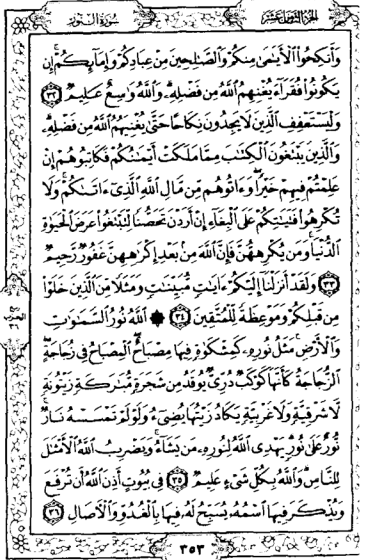 الجزء الثامن عشر
سورة النور
وَأَنكِحُوا۟ ٱلْأَيَـٰمَىٰ مِنكُمْ وَٱلصَّـٰلِحِينَ مِنْ عِبَادِكُمْ وَإِمَآئِكُمْ ۚ إِن
يَكُونُوا۟ فُقَرَآءَ يُغْنِهِمُ ٱللَّهُ مِن فَضْلِهِۦ ۗ وَٱللَّهُ وَٰسِعٌ عَلِيمٌ ٣٢
وَلْيَسْتَعْفِفِ ٱلَّذِينَ لَا يَجِدُونَ نِكَاحًا حَتَّىٰ يُغْنِيَهُمُ ٱللَّهُ مِن فَضْلِهِۦ ۗ
وَٱلَّذِينَ يَبْتَغُونَ ٱلْكِتَـٰبَ مِمَّا مَلَكَتْ أَيْمَـٰنُكُمْ فَكَاتِبُوهُمْ إِنْ
عَلِمْتُمْ فِيهِمْ خَيْرًا ۖ وَءَاتُوهُم مِّن مَّالِ ٱللَّهِ ٱلَّذِىٓ ءَاتَىٰكُمْ ۚ وَلَا
تُكْرِهُوا۟ فَتَيَـٰتِكُمْ عَلَى ٱلْبِغَآءِ إِنْ أَرَدْنَ تَحَصُّنًا لِّتَبْتَغُوا۟ عَرَضَ ٱلْحَيَوٰةِ
ٱلدُّنْيَا ۚ وَمَن يُكْرِههُّنَّ فَإِنَّ ٱللَّهَ مِنۢ بَعْدِ إِكْرَٰهِهِنَّ غَفُورٌ رَّحِيمٌ
٣٣ وَلَقَدْ أَنزَلْنَآ إِلَيْكُمْ ءَايَـٰتٍ مُّبَيِّنَـٰتٍ وَمَثَلًا مِّنَ ٱلَّذِينَ خَلَوْا۟
مِن قَبْلِكُمْ وَمَوْعِظَةً لِّلْمُتَّقِينَ ٣٤ ۞ ٱللَّهُ نُورُ ٱلسَّمَـٰوَٰتِ
وَٱلْأَرْضِ ۚ مَثَلُ نُورِهِۦ كَمِشْكَوٰةٍ فِيهَا مِصْبَاحٌ ۖ ٱلْمِصْبَاحُ فِى زُجَاجَةٍ ۖ
ٱلزُّجَاجَةُ كَأَنَّهَا كَوْكَبٌ دُرِّىٌّ يُوقَدُ مِن شَجَرَةٍ مُّبَـٰرَكَةٍ زَيْتُونَةٍ
لَّا شَرْقِيَّةٍ وَلَا غَرْبِيَّةٍ يَكَادُ زَيْتُهَا يُضِىٓءُ وَلَوْ لَمْ تَمْسَسْهُ نَارٌ ۚ
نُّورٌ عَلَىٰ نُورٍ ۗ يَهْدِى ٱللَّهُ لِنُورِهِۦ مَن يَشَآءُ ۚ وَيَضْرِبُ ٱللَّهُ ٱلْأَمْثَـٰلَ
لِلنَّاسِ ۗ وَٱللَّهُ بِكُلِّ شَىْءٍ عَلِيمٌ ٣٥ فِى بُيُوتٍ أَذِنَ ٱللَّهُ أَن تُرْفَعَ
وَيُذْكَرَ فِيهَا ٱسْمُهُۥ يُسَبِّحُ لَهُۥ فِيهَا بِٱلْغُدُوِّ وَٱلْـَٔاصَالِ ٣٦
٣٥٣